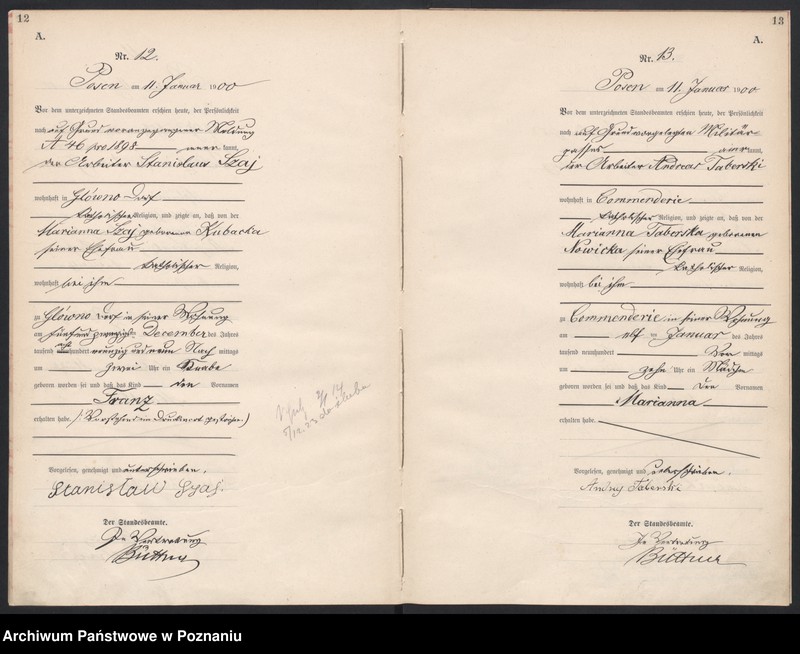 12
A.
Nr. 12.
Posen am 11. Januar 1900
Vor dem unterzeichneten Standesbeamten erschien heute, der Persönlichkeit
nach auf Grund vorangegangener Meldung
A 46 pro 1898 kannt,
der Arbeiter Stanislaus Szaj
wohnhaft in Glówno Dorf
katholischer Religion, und zeigte an, daß von der
Marianna Szaj geborenen Kubacka
seiner Ehefrau
katholischer Religion,
wohnhaft bei ihm
zu Glówno Dorf in seiner Wohnung
am fünf und zwanzigsten December des Jahres
tausend acht hundert neunzig und neun Nach mittags
um zwei Uhr ein Knabe
geboren worden sei und daß das Kind den Vornamen
Franz
erhalten habe. /: Vorstehend ein Druckwort gestrichen)
Vorgelesen, genehmigt und unterschrieben.
Stanisław Szaj.
Der Standesbeamte.
In Vertretung
Büttner
13
A.
Nr. 13.
Posen am 11. Januar 1900
Vor dem unterzeichneten Standesbeamten erschien heute, der Persönlichkeit
nach auf Grund vorgelegten Militär
passes kannt,
der Arbeiter Andreas Taberski
wohnhaft in Commenderie
katholischer Religion, und zeigte an, daß von der
Marianna Taberska geborenen
Nowicka seiner Ehefrau
katholischer Religion,
wohnhaft bei ihm
zu Commenderie in seiner Wohnung
am elf ten Januar des Jahres
tausend neunhundert Vor mittags
um zehn Uhr ein Mädchen
geboren worden sei und daß das Kind den Vornamen
Marianna
erhalten habe.
Vorgelesen, genehmigt und unterschrieben.
Andrzej Taberski
Der Standesbeamte.
In Vertretung
Büttner
Archiwum Państwowe w Poznaniu